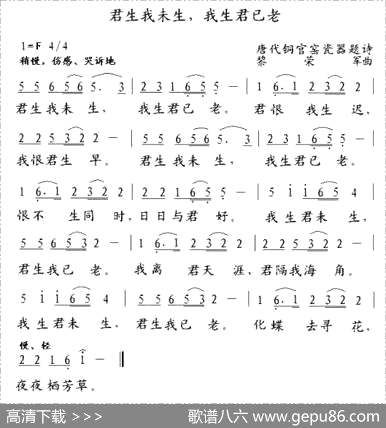 君生我未生，我生君已老
1=F 4/4
唐代铜官窑瓷器题诗
稍慢，伤感、哭诉地
黎荣军曲
5 5 6 5 6 5 5. 3 | 2 3 1 6 5 5 - | 1 6. 1 2 3 2 2 |
君生我未 生， 我生君已 老。 君恨 我生 迟，
2 2 5 3 2 2 - | 5 5 6 5 6 5. 3 | 2 3 1 6 5 5 - |
我恨君生 早。 君生我未 生， 我生君已 老。
1 6. 1 2 3 2 2 | 2 2 1 6 5 5 - | 5 i i 6 5 4 |
恨不 生同 时，日日与君 好。 我生君未 生，
5 5 6 5 3 2 - | 1 6. 1 2 3 2 2 | 2 2 5 3 2 2 - |
君生我已 老。 我离 君天 涯，君隔我海 角。
5 i i 6 5 4 | 5 5 6 5 3 2 - | 1 6. 1 2 3 2 2 |
我生君未 生， 君生我已 老。 化蝶 去寻 花，
慢、轻
2 2 1 6 i - ‖
夜夜栖芳草。
高清下载 >>> 歌谱八六 www.gepu86.com